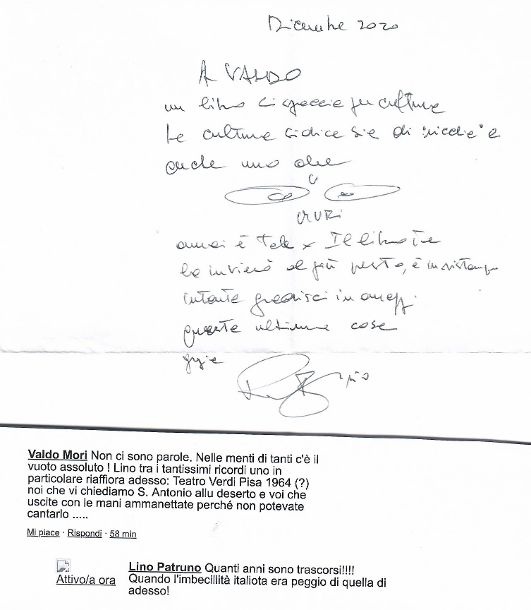 Dicembre 2020
A VALDO
un libro ci per cultura
la cultura si dice sia di "nicchia" e
anche uno che
MURI
è tale Il libro te
lo invierò al più presto, è in ristampa
intanto gradisci in
queste ultime cose
Valdo Mori Non ci sono parole. Nelle menti di tanti c'è il
vuoto assoluto ! Lino tra i tantissimi ricordi uno in
particolare riaffiora adesso: Teatro Verdi Pisa 1964 (?)
noi che vi chiediamo S. Antonio allu deserto e voi che
uscite con le mani ammanettate perché non potevate
cantarlo .....
Mi piace · Rispondi · 58 min
Attivo/a ora
Lino Patruno Quanti anni sono trascorsi!!!!
Quando l'imbecillità italiota era peggio di quella di
adesso!